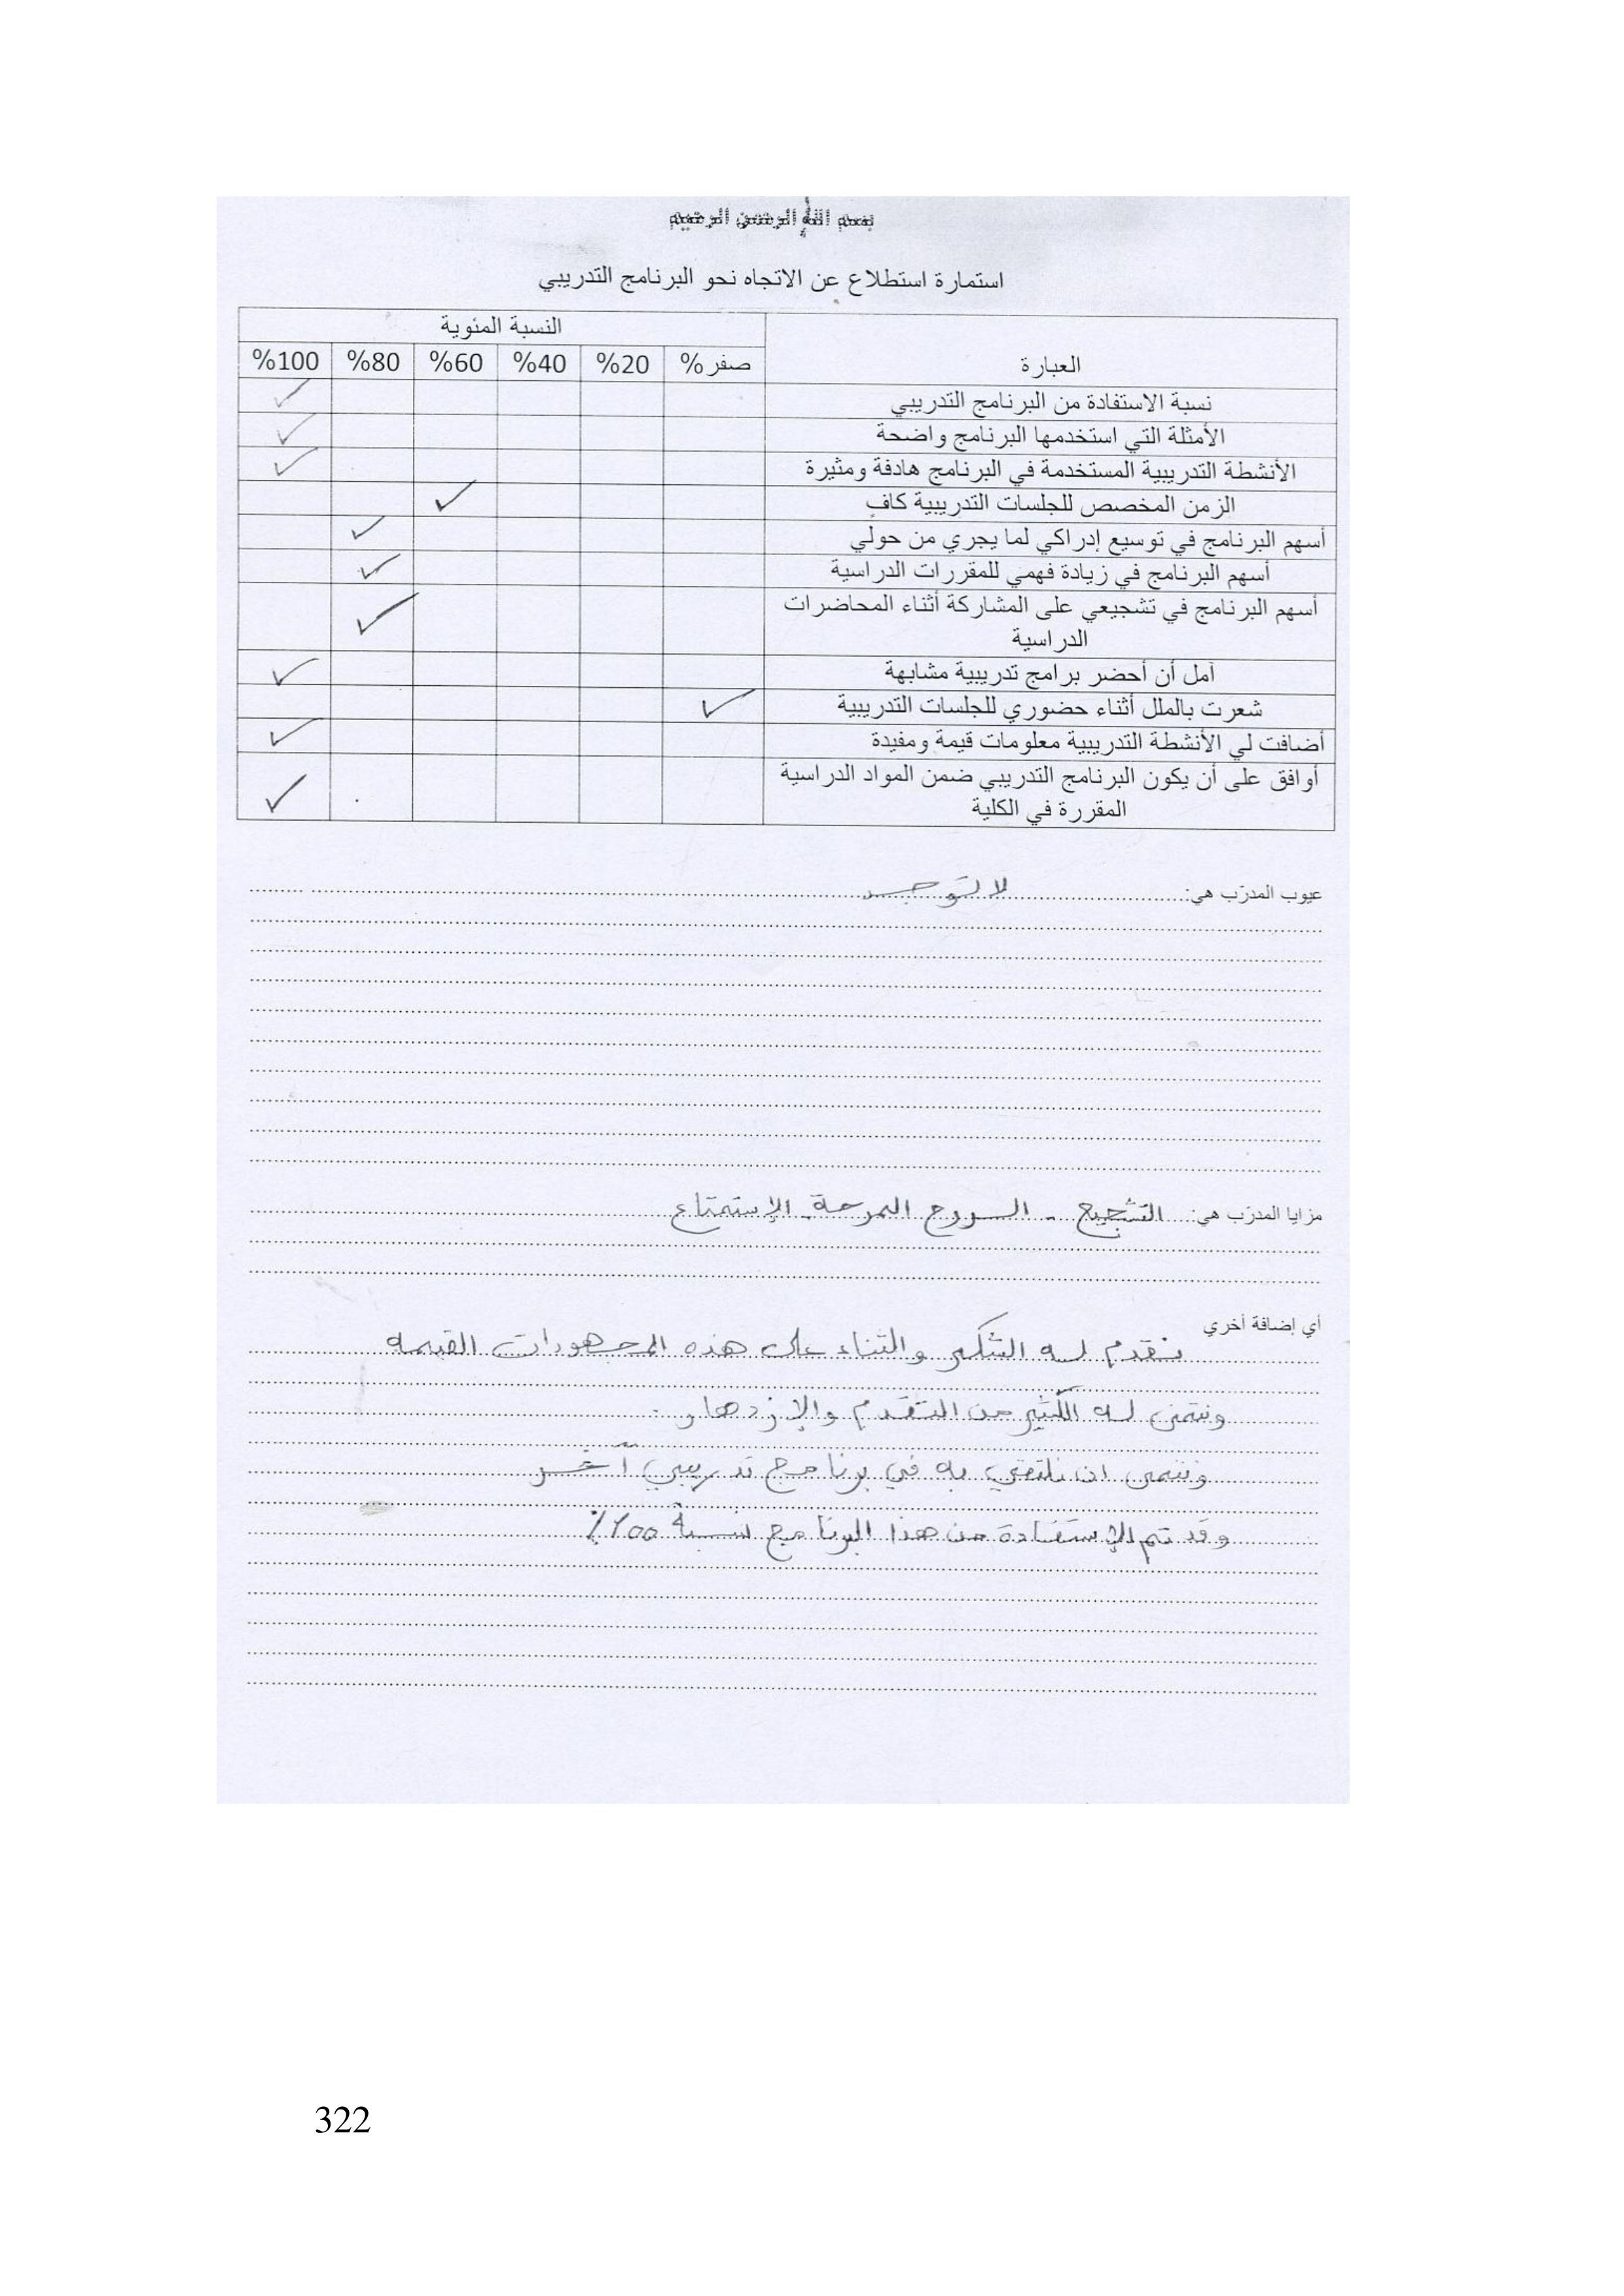 بسم الله الرحمن الرحيم
استمارة استطلاع عن الاتجاه نحو البرنامج التدريبي
العبارة النسبة المئوية
صفر% 20% 40% 60% 80% 100%
نسبة الاستفادة من البرنامج التدريبي ✓
الأمثلة التي استخدمها البرنامج واضحة ✓
الأنشطة التدريبية المستخدمة في البرنامج هادفة ومثيرة ✓
الزمن المخصص للجلسات التدريبية كافٍ ✓
أسهم البرنامج في توسيع إدراكي لما يجري من حولي ✓
أسهم البرنامج في زيادة فهمي للمقررات الدراسية ✓
أسهم البرنامج في تشجيعي على المشاركة أثناء المحاضرات
الدراسية ✓
آمل أن أحضر برامج تدريبية مشابهة ✓
شعرت بالملل أثناء حضوري للجلسات التدريبية ✓
أضافت لي الأنشطة التدريبية معلومات قيمة ومفيدة ✓
أوافق على أن يكون البرنامج التدريبي ضمن المواد الدراسية
المقررة في الكلية ✓
عيوب المدرّب هي: لا توجد
مزايا المدرّب هي: التشجيع - الروح المرحة. الإستمتاع
أي إضافة أخري
نقدم له الشكر والثناء على هذه المجهودات القيمه
ونتمنى له الكثير من التقدم والإزدهار.
ونتمى ان نلتقي به في برنامج تدريبي آخر
وقد تم الإستفادة من هذا البرنامج نسبة ٢٠٠٪
322